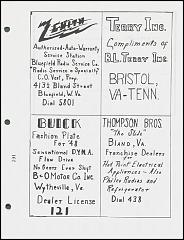 Zenith
Authorized-Auto-Warranty
Service Station
Bluefield Radio Service Co.
"Radio Service a Specialty"
C.O. Vest, Prop.
4131 Bland Street
Bluefield, W. Va.
Dial 5801
TERRY INC.
Compliments of
B.L. Terry Inc.
BRISTOL,
VA-TENN
BUICK
Fashion Plate
For '48
Sensational DYNA.
Flow Drive
No Gears Less Shift
B-O Motor Co. Inc
Wytheville, Va.
Dealer License
121
THOMPSON BROS.
"The Slide"
BLAND, VA.
Franchise Dealers
for
Hot Point Electrical
Appliances - Also
Philco Radios and
Refrigerator
Dial 438